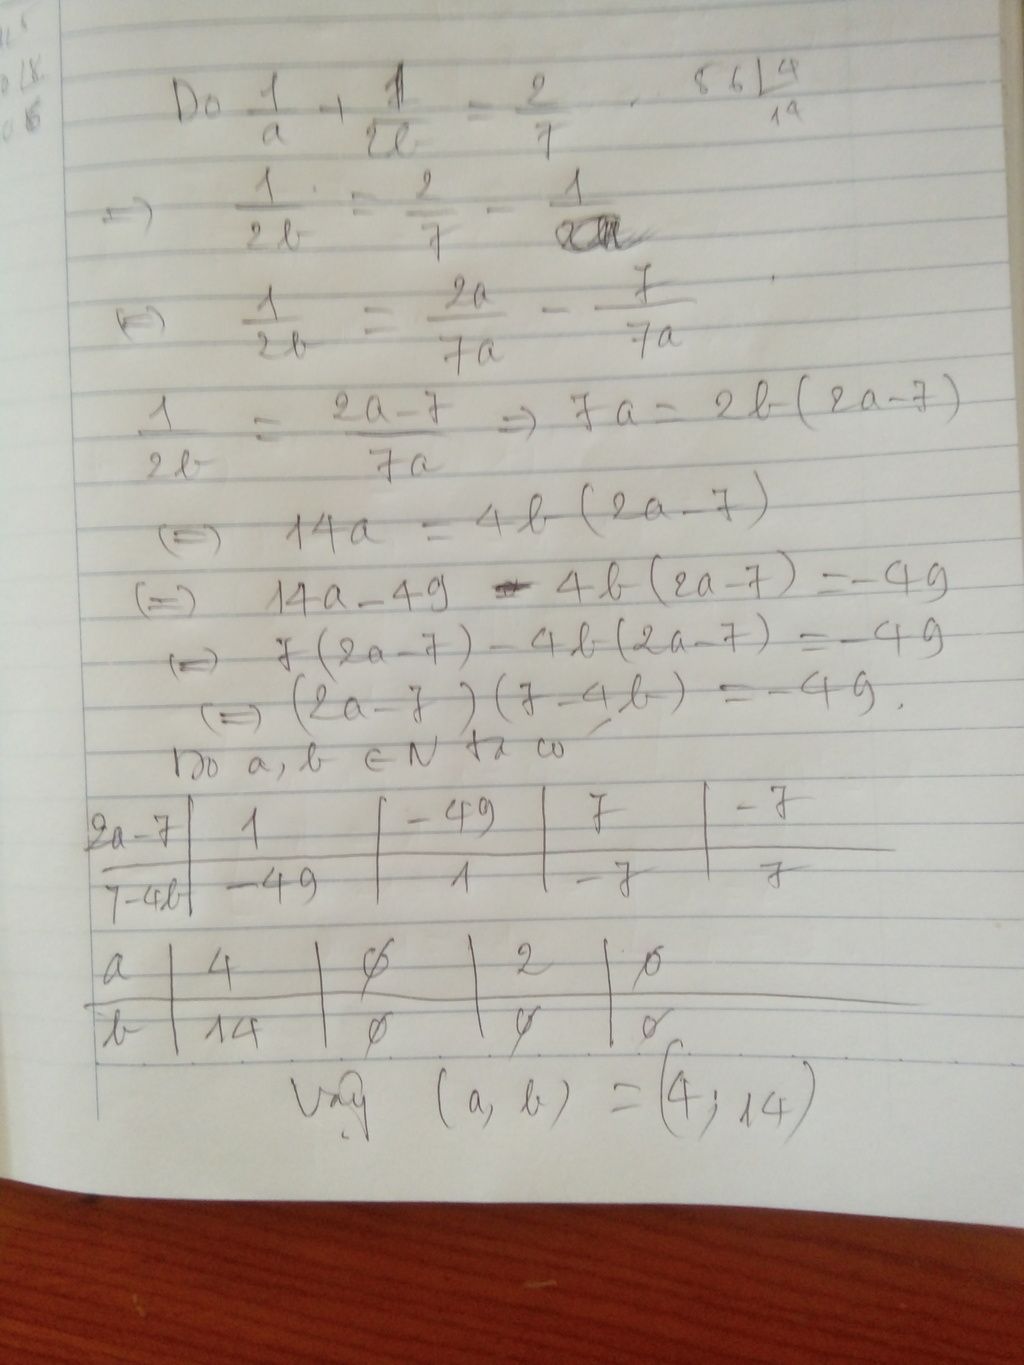 Do 1/a + 1/2b = 2/7 . 56 | 4
14
=> 1/2b = 2/7 - 1/
<=> 1/2b = 2a/7a - 7/7a
1/2b = 2a-7/7a => 7a = 2b(2a-7)
<=> 14a = 4b(2a-7)
<=> 14a - 49 - 4b(2a-7) = -49
<=> 7(2a-7) - 4b(2a-7) = -49
<=> (2a-7)(7-4b) = -49.
Do a, b ∈ N ta có
2a-7 | 1 | -49 | 7 | -7
7-4b | -49 | 1 | -7 | 7
a | 4 | ∅ | 2 | ∅
b | 14 | ∅ | ∅ | ∅
Vậy (a, b) = (4; 14)